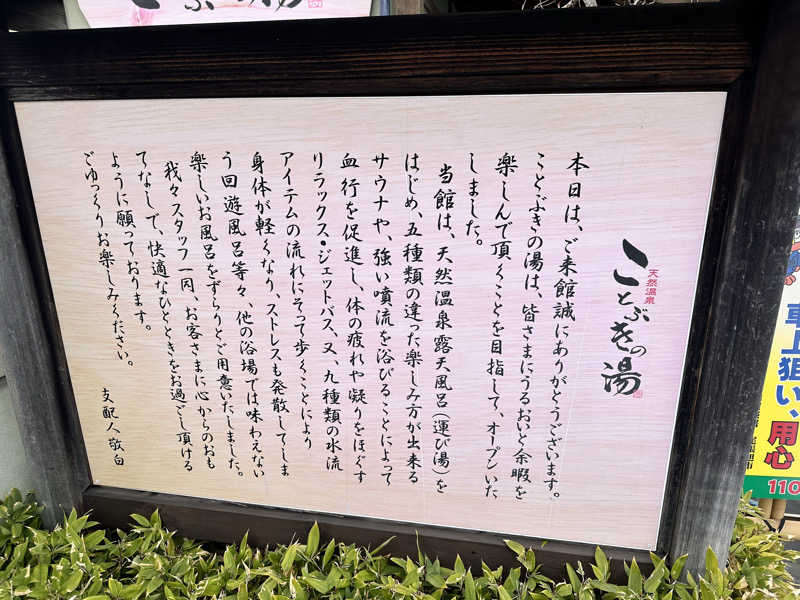 天然温泉
ことぶきの湯
本日は、ご来館誠にありがとうございます。
ことぶきの湯は、皆さまにうるおいと余暇を
楽しんで頂くことを目指して、オープンいた
しました。
当館は、天然温泉露天風呂(運び湯)を
はじめ、五種類の違った楽しみ方が出来る
サウナや、強い噴流を浴びることによって
血行を促進し、体の疲れや凝りをほぐす
リラックス・ジェットバス、又、九種類の水流
アイテムの流れにそって歩くことにより
身体が軽くなり、ストレスも発散してしま
う回遊風呂等々、他の浴場では味わえない
楽しいお風呂をずらりとご用意いたしました。
我々スタッフ一同、お客さまに心からのおも
てなしで、快適なひとときをお過ごし頂ける
ように願っております。
ごゆっくりお楽しみください。
支配人敬白
車上狙い、
用心
110